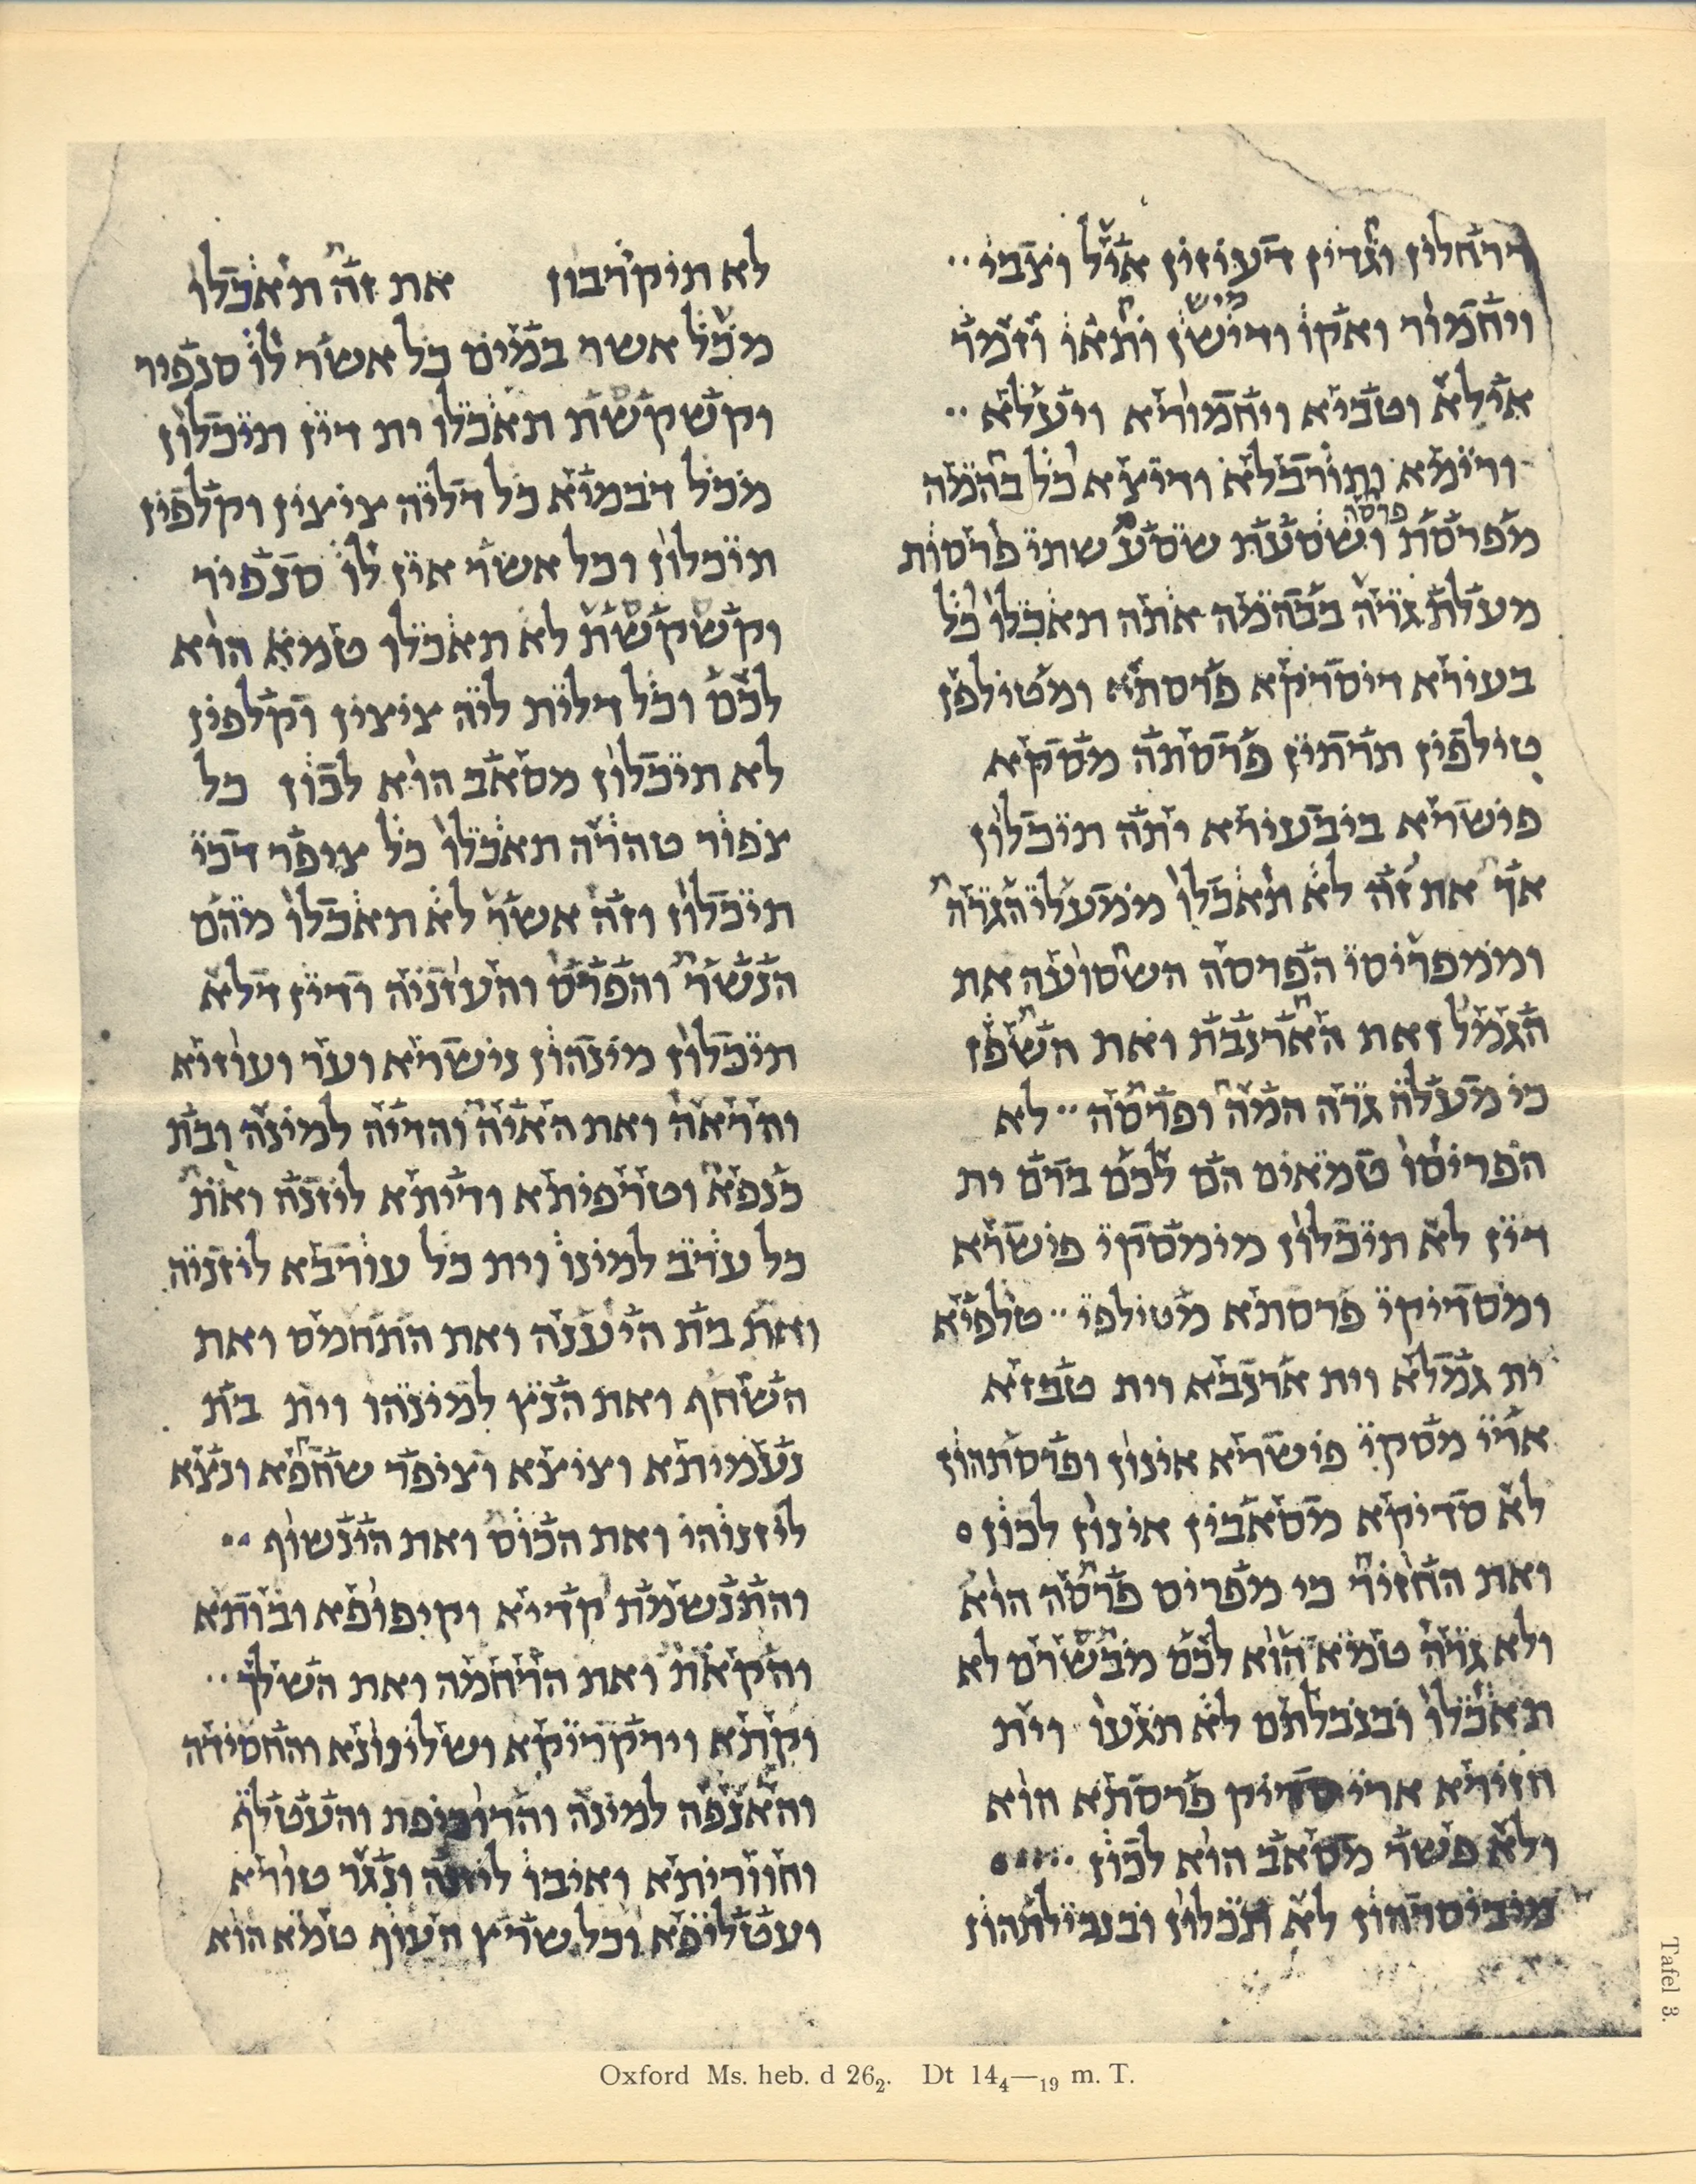 דרחלין וגדיין דעיזין איל וצבי
ויחמור ואקו ודישן ותאו וזמר
מיש
אילא וטביא ויחמורא ויעלא
ורימא ותורבלא ודיצא כל בהמה
פרסה
מפרסת ושסעת שסע שתי פרסות
מעלת גרה בבהמה אתה תאכלו כל
בעירא דיסדיקא פרסתא ומטילפן
טילפין תרתין פרסתה מסקא
פישרא ביבעירא יתה תיכלון
אך את זה לא תאכלו ממעלי הגרה
וממפריסי הפרסה השסועה את
הגמל ואת הארנבת ואת השפן
כי מעלה גרה המה ופרסה לא
הפריסו טמאים הם לכם ברם ית
דין לא תיכלון מימסקי פישרא
ומסדיקי פרסתא מטילפי טלפיא
ית גמלא וית ארנבא וית טבזא
ארי מסקי פישרא אינון ופרסתהון
לא סדיקא מסאבין אינון לכון
ואת החזיר כי מפריס פרסה הוא
ולא גרה טמא הוא לכם מבשרם לא
תאכלו ובנבלתם לא תגעו וית
חזירא ארי סדיק פרסתא הוא
ולא פשר מסאב הוא לכון
מיביסרהון לא תכלון ובנבילתהון
לא תיקרבון את זה תאכלו
מכל אשר במים כל אשר לו סנפיר
וקשקשת תאכלו ית דין תיכלון
מכל דבמיא כל דליה ציצין וקלפין
תיכלון וכל אשר אין לו סנפיר
וקשקשת לא תאכלו טמא הוא
לכם וכל דלית ליה ציצין וקלפין
לא תיכלון מסאב הוא לכון כל
צפור טהרה תאכלו כל ציפר דכי
תיכלון וזה אשר לא תאכלו מהם
הנשר והפרס והעזניה ודין דלא
תיכלון מינהון נישרא וער ועוזיא
והראה ואת האיה והדיה למינה ובת
כנפא וטרפיתא ודיתא ליזנה ואת
כל ערב למינו וית כל עורבא ליזניה
ואת בת היענה ואת התחמס ואת
השחף ואת הנץ למינהו וית בת
נעמיתא וציצא וציפר שחפא ונצא
ליזנוהי ואת הכוס ואת הינשוף
והתנשמת קדיא וקיפופא ובותא
והקאת ואת הרחמה ואת השלך
וקתא וירקריקא ושלינונא והחסידה
והאנפה למינה והדוכיפת והעטלף
וחווריתא ואיבו ליזנה ונגר טורא
ועטליפא וכל שרץ העוף טמא הוא
Oxford Ms. heb. d 26₂. Dt 14₄—₁₉ m. T.
Tafel 3.